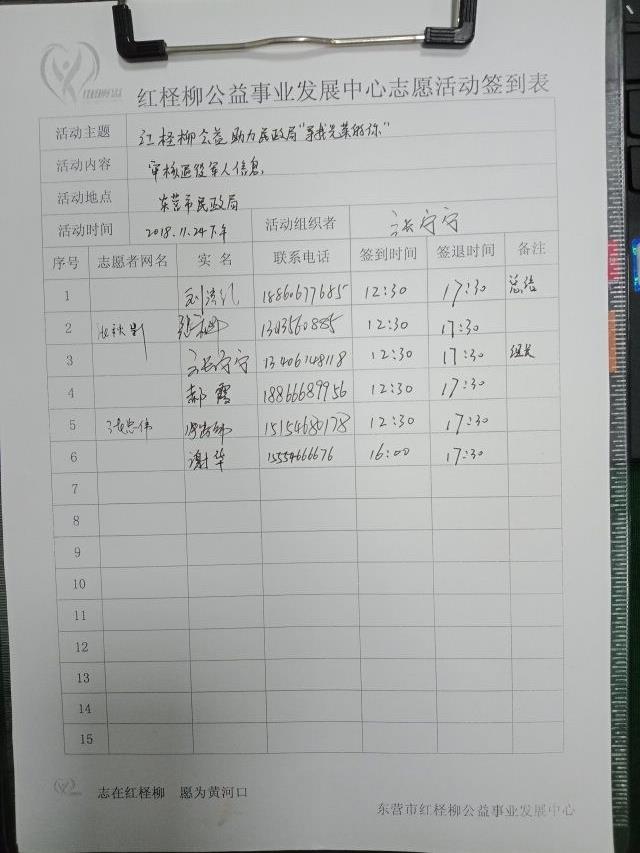 红柽柳公益事业发展中心志愿活动签到表
活动主题 红柽柳公益助力民政局"等我光荣的你"
活动内容 审核退役军人信息
活动地点 东营市民政局
活动时间 2018.11.24下午 活动组织者 守宁
序号 志愿者网名 实 名 联系电话 签到时间 签退时间 备注
1 18860677685 12:30 17:30 总结
2 1303560885 12:30 17:30
3 守宁 13406148118 12:30 17:30 组长
4 郝霞 18866689956 12:30 17:30
5 15154680178 12:30 17:30
6 谢华 15554666676 16:00 17:30
7
8
9
10
11
12
13
14
15
志在红柽柳 愿为黄河口
东营市红柽柳公益事业发展中心